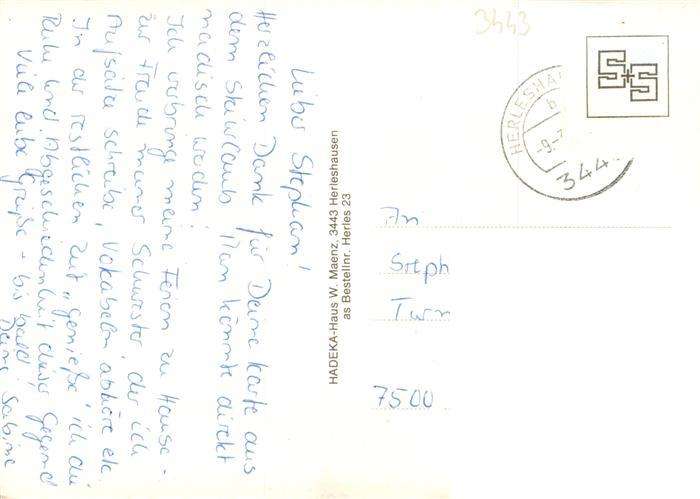 Lieber Stephan!
Herzlichen Dank für Deine Karte aus
dem Skiurlaub. Man könnte direkt
neidisch werden!
Ich verbringe meine Ferien zu Hause -
zur Freude meiner Schwester, der ich
Aufsätze schreibe, Vokabeln abhöre etc.
In der restlichen Zeit "genieße" ich die
Ruhe und Abgeschiedenheit dieser Gegend
Viele liebe Grüße - bis bald!
Deine Sabine
HADEKA-Haus W. Maenz, 3443 Herleshausen
as Bestellnr. Herles 23
3443
S+S
HERLESHA
b
-9.-7
344
An
Steph
Turn
7500